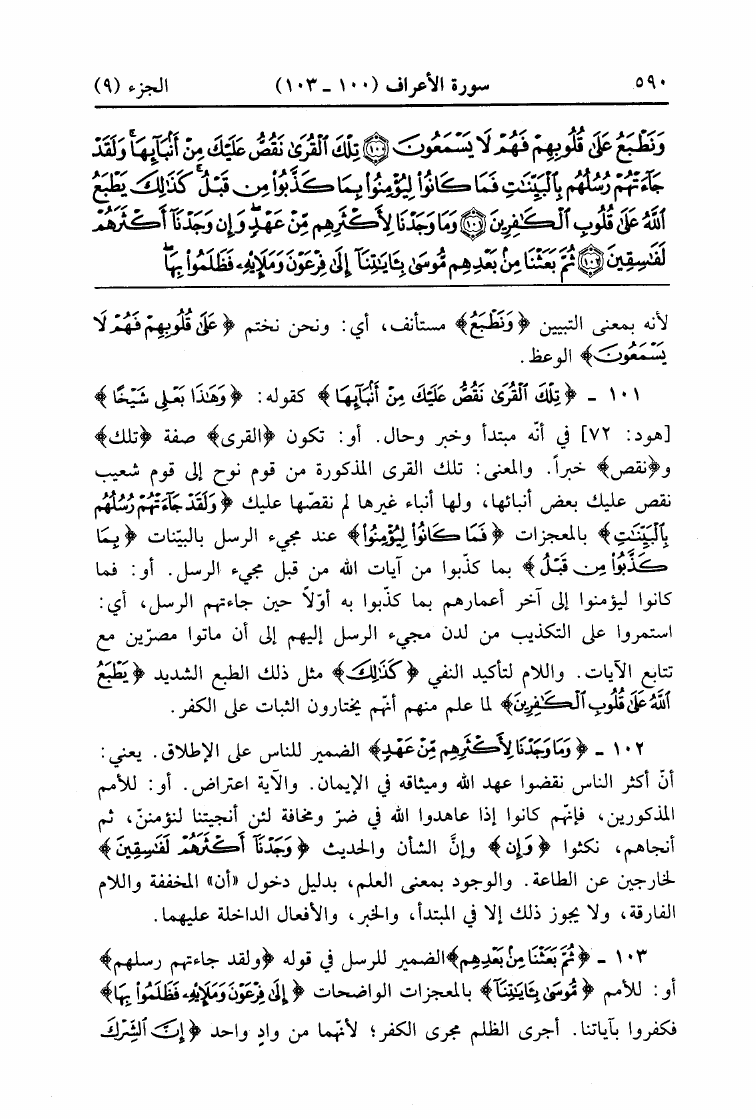 ٥٩٠ سورة الأعراف (١٠٠ ـ ١٠٣) الجزء (٩)
وَنَطْبَعُ عَلَىٰ قُلُوبِهِمْ فَهُمْ لَا يَسْمَعُونَ ﴿١٠٠﴾ تِلْكَ ٱلْقُرَىٰ نَقُصُّ عَلَيْكَ مِنْ أَنۢبَآئِهَا ۚ وَلَقَدْ
جَآءَتْهُمْ رُسُلُهُم بِٱلْبَيِّنَـٰتِ فَمَا كَانُوا۟ لِيُؤْمِنُوا۟ بِمَا كَذَّبُوا۟ مِن قَبْلُ ۚ كَذَٰلِكَ يَطْبَعُ
ٱللَّهُ عَلَىٰ قُلُوبِ ٱلْكَـٰفِرِينَ ﴿١٠١﴾ وَمَا وَجَدْنَا لِأَكْثَرِهِم مِّنْ عَهْدٍ ۖ وَإِن وَجَدْنَآ أَكْثَرَهُمْ
لَفَـٰسِقِينَ ﴿١٠٢﴾ ثُمَّ بَعَثْنَا مِنۢ بَعْدِهِم مُّوسَىٰ بِـَٔايَـٰتِنَآ إِلَىٰ فِرْعَوْنَ وَمَلَإِي۟هِۦ فَظَلَمُوا۟ بِهَا ۖ
لأنه بمعنى التبيين ﴿وَنَطْبَعُ﴾ مستأنف، أي: ونحن نختم ﴿عَلَىٰ قُلُوبِهِمْ فَهُمْ لَا
يَسْمَعُونَ﴾ الوعظ.
١٠١ ـ ﴿تِلْكَ ٱلْقُرَىٰ نَقُصُّ عَلَيْكَ مِنْ أَنۢبَآئِهَا﴾ كقوله: ﴿وَهَـٰذَا بَعْلِى شَيْخًا﴾
[هود: ٧٢] في أنّه مبتدأ وخبر وحال. أو: تكون ﴿القرى﴾ صفة ﴿تلك﴾
و﴿نقص﴾ خبراً. والمعنى: تلك القرى المذكورة من قوم نوح إلى قوم شعيب
نقص عليك بعض أنبائها، ولها أنباء غيرها لم نقصّها عليك ﴿وَلَقَدْ جَآءَتْهُمْ رُسُلُهُم
بِٱلْبَيِّنَـٰتِ﴾ بالمعجزات ﴿فَمَا كَانُوا۟ لِيُؤْمِنُوا۟﴾ عند مجيء الرسل بالبيّنات ﴿بِمَا
كَذَّبُوا۟ مِن قَبْلُ﴾ بما كذّبوا من آيات الله من قبل مجيء الرسل. أو: فما
كانوا ليؤمنوا إلى آخر أعمارهم بما كذّبوا به أوّلاً حين جاءتهم الرسل، أي:
استمروا على التكذيب من لدن مجيء الرسل إليهم إلى أن ماتوا مصرّين مع
تتابع الآيات. واللام لتأكيد النفي ﴿كَذَٰلِكَ﴾ مثل ذلك الطبع الشديد ﴿يَطْبَعُ
ٱللَّهُ عَلَىٰ قُلُوبِ ٱلْكَـٰفِرِينَ﴾ لما علم منهم أنّهم يختارون الثبات على الكفر.
١٠٢ ـ ﴿وَمَا وَجَدْنَا لِأَكْثَرِهِم مِّنْ عَهْدٍ﴾ الضمير للناس على الإطلاق. يعني:
أنّ أكثر الناس نقضوا عهد الله وميثاقه في الإيمان. والآية اعتراض. أو: للأمم
المذكورين، فإنّهم كانوا إذا عاهدوا الله في ضرّ ومخافة لئن أنجيتنا لنؤمننّ، ثم
أنجاهم، نكثوا ﴿وَإِن﴾ وإنَّ الشأن والحديث ﴿وَجَدْنَآ أَكْثَرَهُمْ لَفَـٰسِقِينَ﴾
لخارجين عن الطاعة. والوجود بمعنى العلم، بدليل دخول «أن» المخففة واللام
الفارقة، ولا يجوز ذلك إلا في المبتدأ، والخبر، والأفعال الداخلة عليهما.
١٠٣ ـ ﴿ثُمَّ بَعَثْنَا مِنۢ بَعْدِهِم﴾ الضمير للرسل في قوله ﴿ولقد جاءتهم رسلهم﴾
أو: للأمم ﴿مُّوسَىٰ بِـَٔايَـٰتِنَآ﴾ بالمعجزات الواضحات ﴿إِلَىٰ فِرْعَوْنَ وَمَلَإِي۟هِۦ فَظَلَمُوا۟ بِهَا﴾
فكفروا بآياتنا. أجرى الظلم مجرى الكفر؛ لأنّهما من وادٍ واحد ﴿إِنَّ ٱلشِّرْكَ